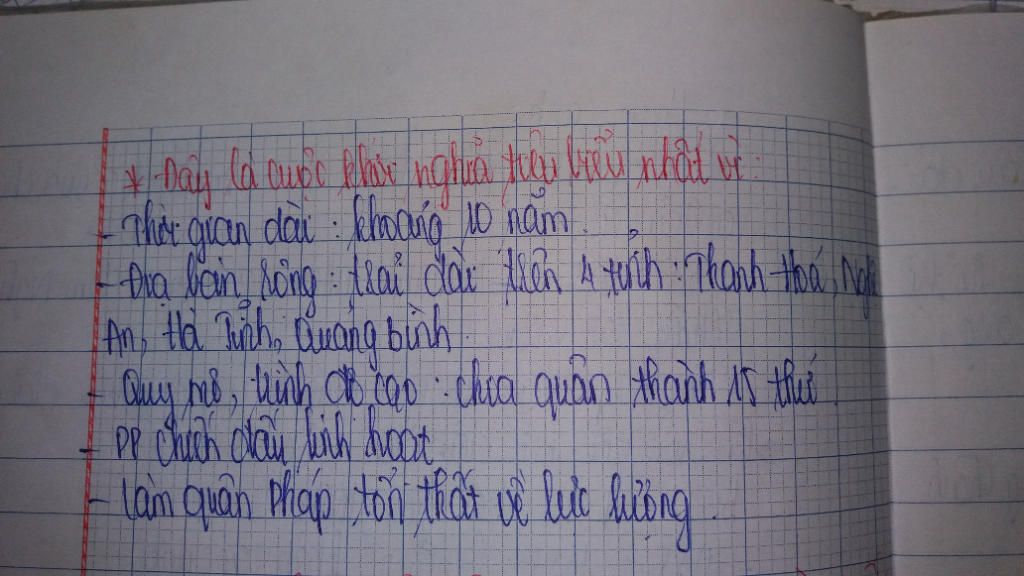 * Đây là cuộc khởi nghĩa tiêu biểu nhất vì:
- Thời gian dài: khoảng 10 năm.
- Địa bàn rộng: trải dài trên 4 tỉnh: Thanh Hoá, Nghệ
An, Hà Tĩnh, Quảng bình.
- Quy mô, trình độ cao: chia quân thành 15 thứ.
- PP chiến đấu linh hoạt
- Làm quân Pháp tổn thất về lực lượng.